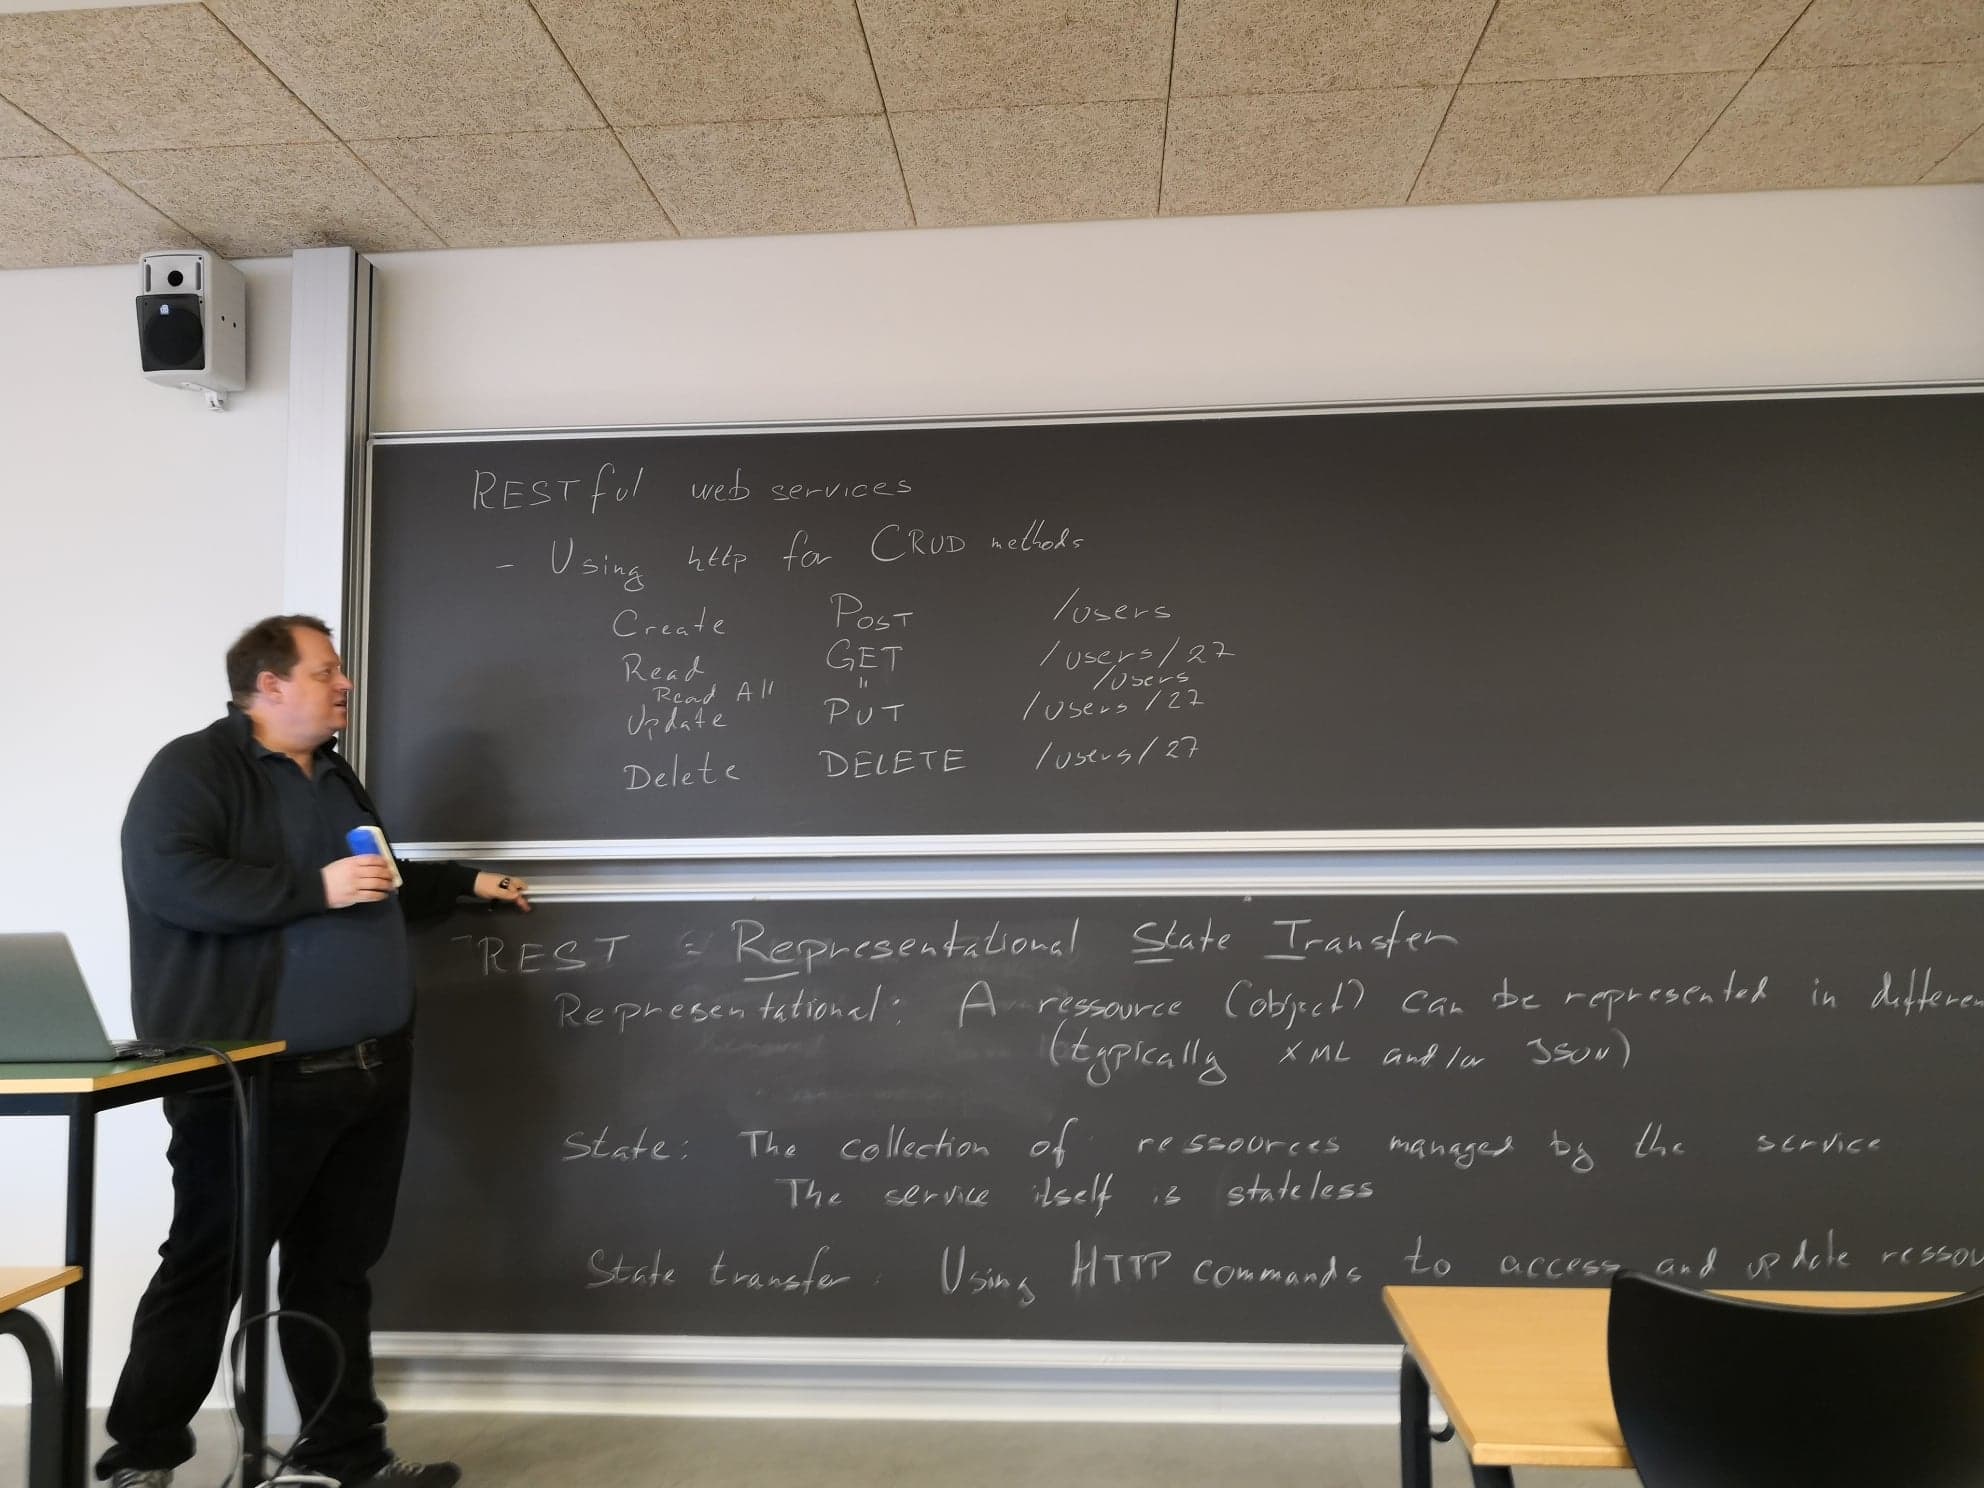 RESTful web services
- Using http for CRUD methods
Create POST /users
Read GET /users/27
Read All " /users
Update PUT /users/27
Delete DELETE /users/27
REST = Representational State Transfer
Representational: A ressource (object) can be represented in differen
(typically XML and/or JSON)
State: The collection of ressources managed by the service
The service itself is stateless
State transfer: Using HTTP commands to access and update ressou